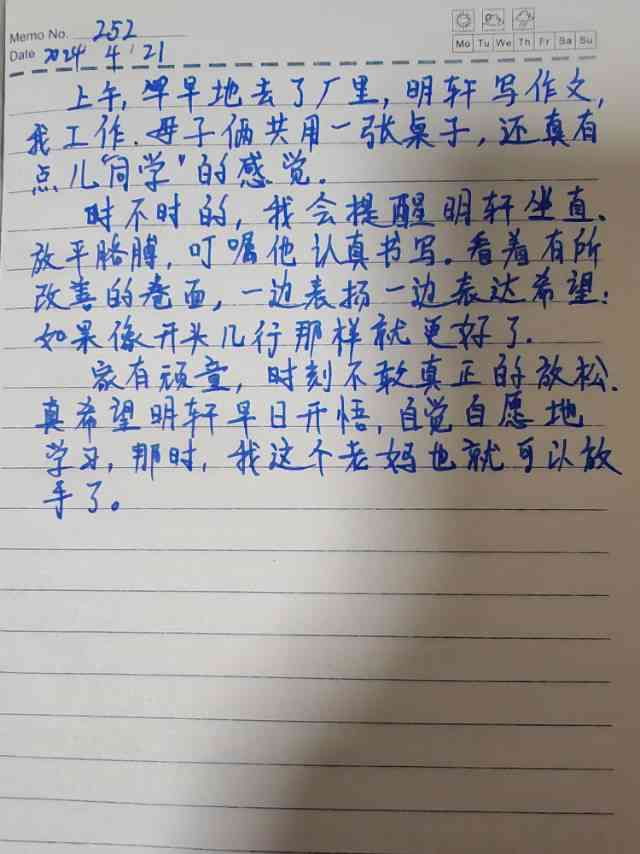 Memo No. 252
Date 2024 / 4 / 21
Mo Tu We Th Fr Sa Su
上午,早早地去了厂里,明轩写作文,
我工作.母子俩共用一张桌子,还真有
点儿"同学"的感觉.
时不时的,我会提醒明轩坐直、
放平胳膊,叮嘱他认真书写.看着有所
改善的卷面,一边表扬一边表达希望:
如果像开头几行那样就更好了.
家有顽童,时刻不敢真正的放松.
真希望明轩早日开悟,自觉自愿地
学习,那时,我这个老妈也就可以放
手了。